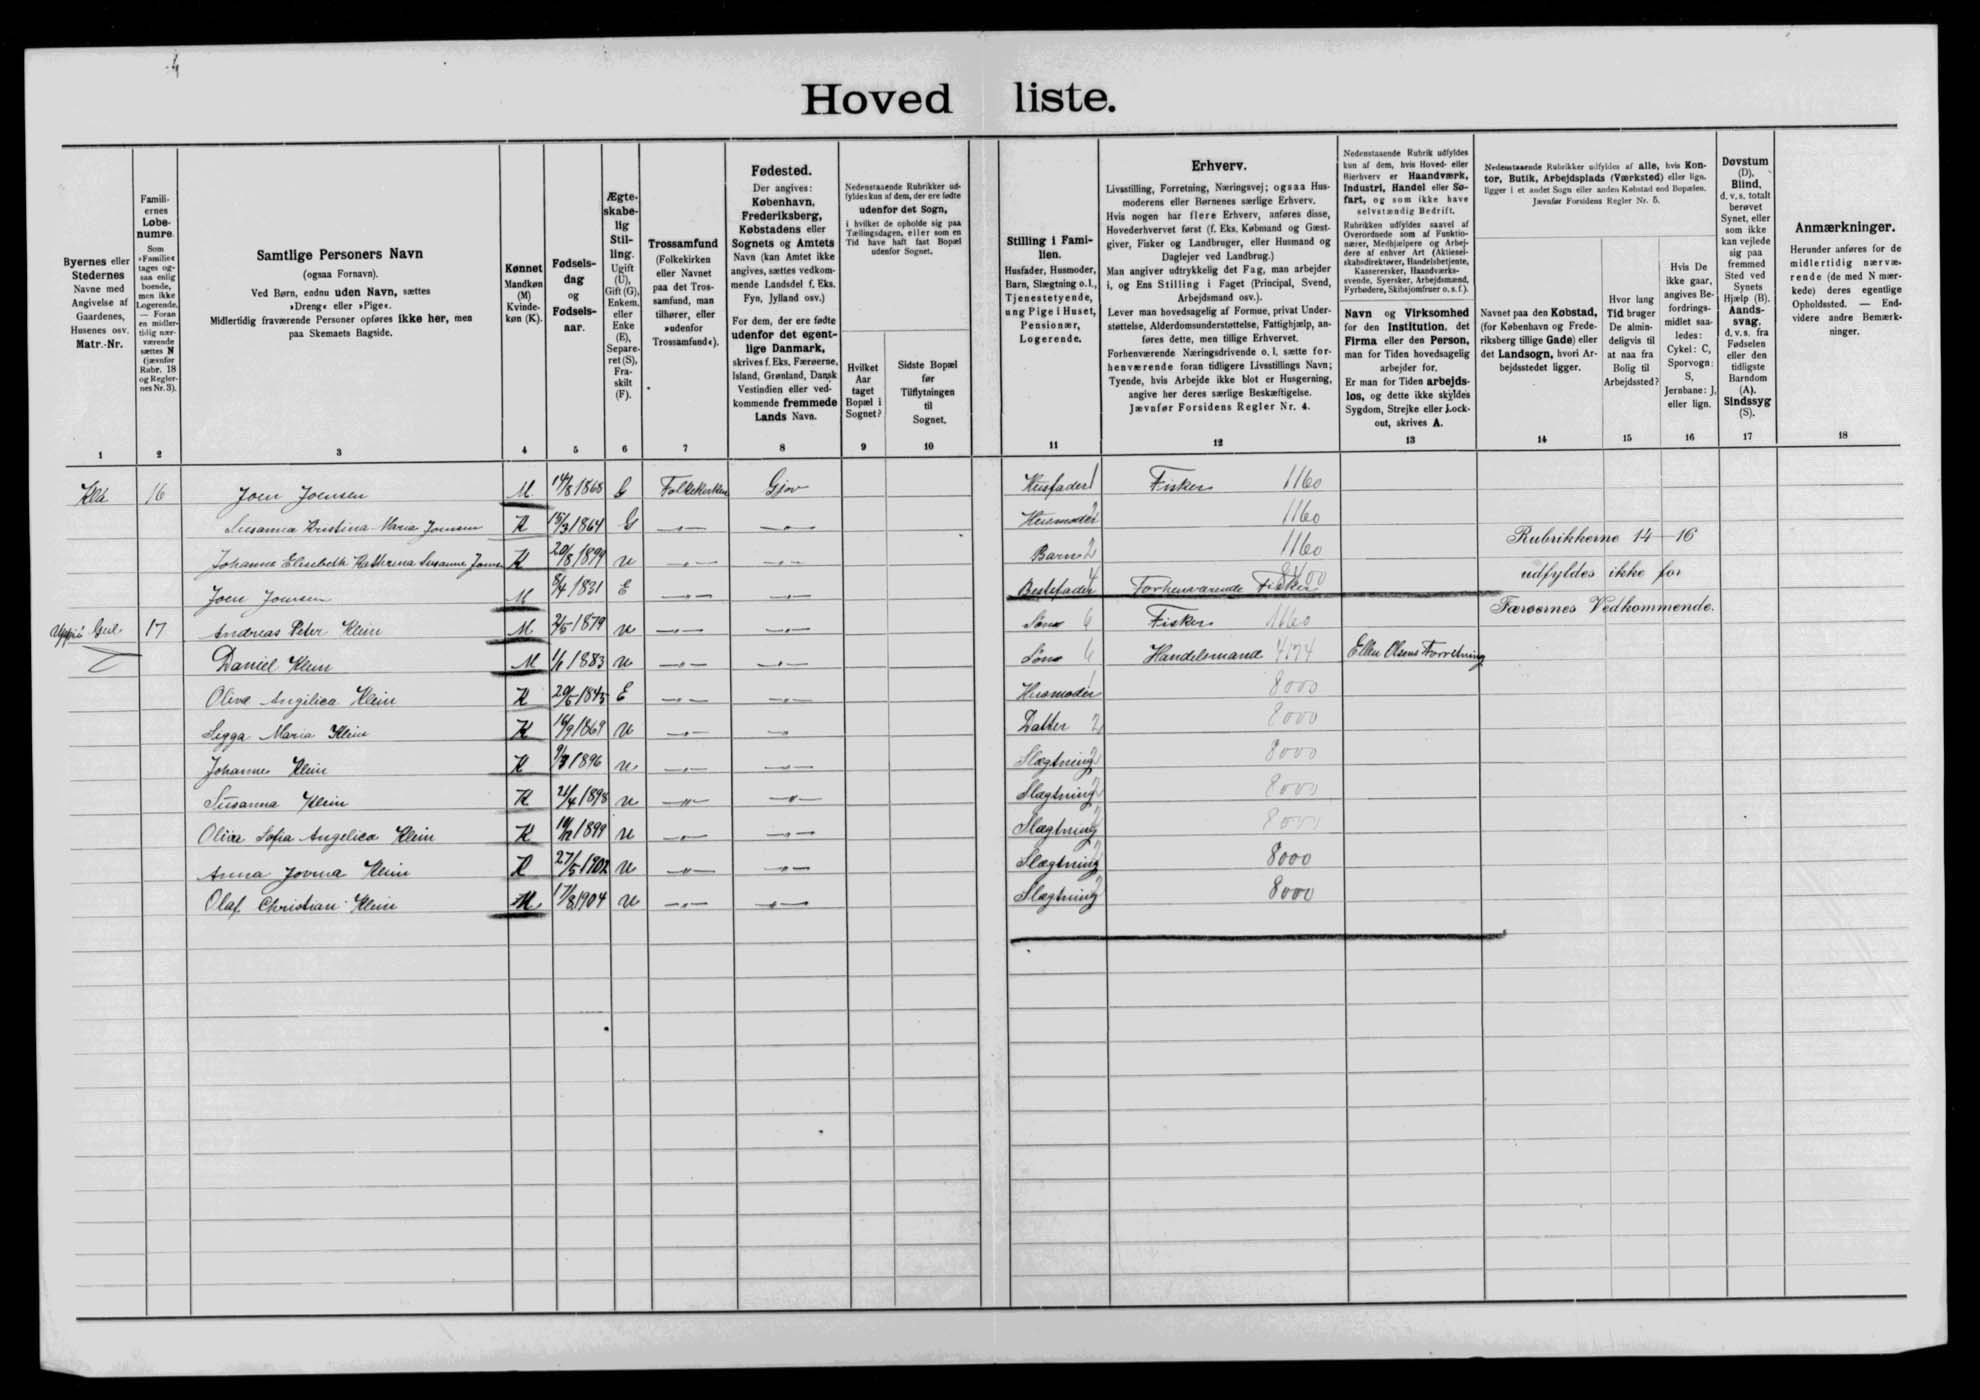 Hoved liste.
Byernes eller
Stedernes
Navne med
Angivelse af
Gaardenes,
Husenes osv.
Matr.-Nr.
Famili-
ernes
Løbe-
numre.
Som
»Familie«
tages og-
saa enlig
boende,
men ikke
Logerende.
— Foran
en midler-
tidig nær-
værende
sættes N
(jævnfør
Rubr. 18
og Regler-
nes Nr. 3).
Samtlige Personers Navn
(ogsaa Fornavn).
Ved Børn, endnu uden Navn, sættes
»Dreng« eller »Pige«.
Midlertidig fraværende Personer opføres ikke her, men
paa Skemaets Bagside.
Kønnet
Mandkøn
(M)
Kvinde-
køn (K).
Fødsels-
dag
og
Fødsels-
aar.
Ægte-
skabe-
lig
Stil-
ling.
Ugift
(U),
Gift (G),
Enkem.
eller
Enke
(E),
Separe-
ret (S),
Fra-
skilt
(F).
Trossamfund
(Folkekirken
eller Navnet
paa det Tros-
samfund, man
tilhører, eller
»udenfor
Trossamfund«).
Fødested.
Der angives:
København,
Frederiksberg,
Købstadens eller
Sognets og Amtets
Navn (kan Amtet ikke
angives, sættes vedkom-
mende Landsdel f. Eks.
Fyn, Jylland osv.)
For dem, der ere fødte
udenfor det egent-
lige Danmark,
skrives f. Eks. Færøerne,
Island, Grønland, Dansk
Vestindien eller ved-
kommende fremmede
Lands Navn.
Nedenstaaende Rubrikker ud-
fyldes kun af dem, der ere fødte
udenfor det Sogn,
i hvilket de opholde sig paa
Tællingsdagen, eller som en
Tid have haft fast Bopæl
udenfor Sognet.
Hvilket
Aar
taget
Bopæl i
Sognet?
Sidste Bopæl
før
Tilflytningen
til
Sognet.
Stilling i Fami-
lien.
Husfader, Husmoder,
Barn, Slægtning o. l.,
Tjenestetyende,
ung Pige i Huset,
Pensionær,
Logerende.
Erhverv.
Livsstilling, Forretning, Næringsvej; ogsaa Hus-
moderens eller Børnenes særlige Erhverv.
Hvis nogen har flere Erhverv, anføres disse,
Hovederhvervet først (f. Eks. Købmand og Gæst-
giver, Fisker og Landbruger, eller Husmand og
Daglejer ved Landbrug.)
Man angiver udtrykkelig det Fag, man arbejder
i, og Ens Stilling i Faget (Principal, Svend,
Arbejdsmand osv.).
Lever man hovedsagelig af Formue, privat Under-
støttelse, Alderdomsunderstøttelse, Fattighjælp, an-
føres dette, men tillige Erhvervet.
Forhenværende Næringsdrivende o. l. sætte for-
henværende foran tidligere Livsstillings Navn;
Tyende, hvis Arbejde ikke blot er Husgerning,
angive her deres særlige Beskæftigelse.
Jævnfør Forsidens Regler Nr. 4.
Nedenstaaende Rubrik udfyldes
kun af dem, hvis Hoved- eller
Bierhverv er Haandværk,
Industri, Handel eller Sø-
fart, og som ikke have
selvstændig Bedrift.
Rubrikken udfyldes saavel af
Overordnede som af Funktio-
nærer, Medhjælpere og Arbej-
dere af enhver Art (Aktiesel-
skabsdirektører, Handelsbetjente,
Kasserersker, Haandværks-
svende, Syersker, Arbejdsmænd,
Fyrbødere, Skibsjomfruer o. s. f.).
Navn og Virksomhed
for den Institution, det
Firma eller den Person,
man for Tiden hovedsagelig
arbejder for.
Er man for Tiden arbejds-
løs, og dette ikke skyldes
Sygdom, Strejke eller Lock-
out, skrives A.
Nedenstaaende Rubrikker udfyldes af alle, hvis Kon-
tor, Butik, Arbejdsplads (Værksted) eller lign.
ligger i et andet Sogn eller anden Købstad end Bopælen.
Jævnfør Forsidens Regler Nr. 5.
Navnet paa den Købstad,
(for København og Frede-
riksberg tillige Gade) eller
det Landsogn, hvori Ar-
bejdsstedet ligger.
Hvor lang
Tid bruger
De almin-
deligvis til
at naa fra
Bolig til
Arbejdssted?
Hvis De
ikke gaar,
angives Be-
fordrings-
midlet saa-
ledes:
Cykel: C,
Sporvogn:
S,
Jernbane: J,
eller lign.
Døvstum
(D).
Blind,
d. v. s. totalt
berøvet
Synet, eller
som ikke
kan vejlede
sig paa
fremmed
Sted ved
Synets
Hjælp (B).
Aands-
svag,
d. v. s. fra
Fødselen
eller den
tidligste
Barndom
(A).
Sindssyg
(S).
Anmærkninger.
Herunder anføres for de
midlertidig nærvæ-
rende (de med N mær-
kede) deres egentlige
Opholdssted. — End-
videre andre Bemærk-
ninger.
1 2 3 4 5 6 7 8 9 10 11 12 13 14 15 16 17 18
16 Joen Joensen M 14/8 1868 G Folkekirken Gjov Husfader 1 Fisker 1160
Susanna Kristina Maria Joensen K 15/3 1864 G —"— —"— Husmoder 2 1160
Johanne Elisebeth Kathrina Susanne K 20/8 1899 U —"— —"— Barn 2 1160
Joen Joensen M 8/4 1831 E —"— —"— Bestefader 4 Forhenværende Fisker 8400
17 Andreas Peter Klein M 2/5 1879 U —"— —"— Søn 6 Fisker 1160
Daniel Klein M 1/1 1883 U —"— —"— Søn 6 Handelsmand 4174 Ellen Olsens Forretning
Olive Angelica Klein K 20/5 1845 E —"— —"— Husmoder 1 8000
Sigga Maria Klein K 16/9 1869 U —"— —"— Datter 2 8000
Johanne Klein K 9/3 1896 U —"— —"— Slægtning 2 8000
Susanna Klein K 21/4 1898 U —"— —"— Slægtning 2 8000
Olive Sofia Angelica Klein K 1899 U —"— —"— Slægtning 2 8000
Anna Jovina Klein K 27/5 1902 U —"— —"— Slægtning 2 8000
Olaf Christian Klein M 17/8 1904 U —"— —"— Slægtning 2 8000
Rubrikkerne 14—16
udfyldes ikke for
Færøernes Vedkommende.